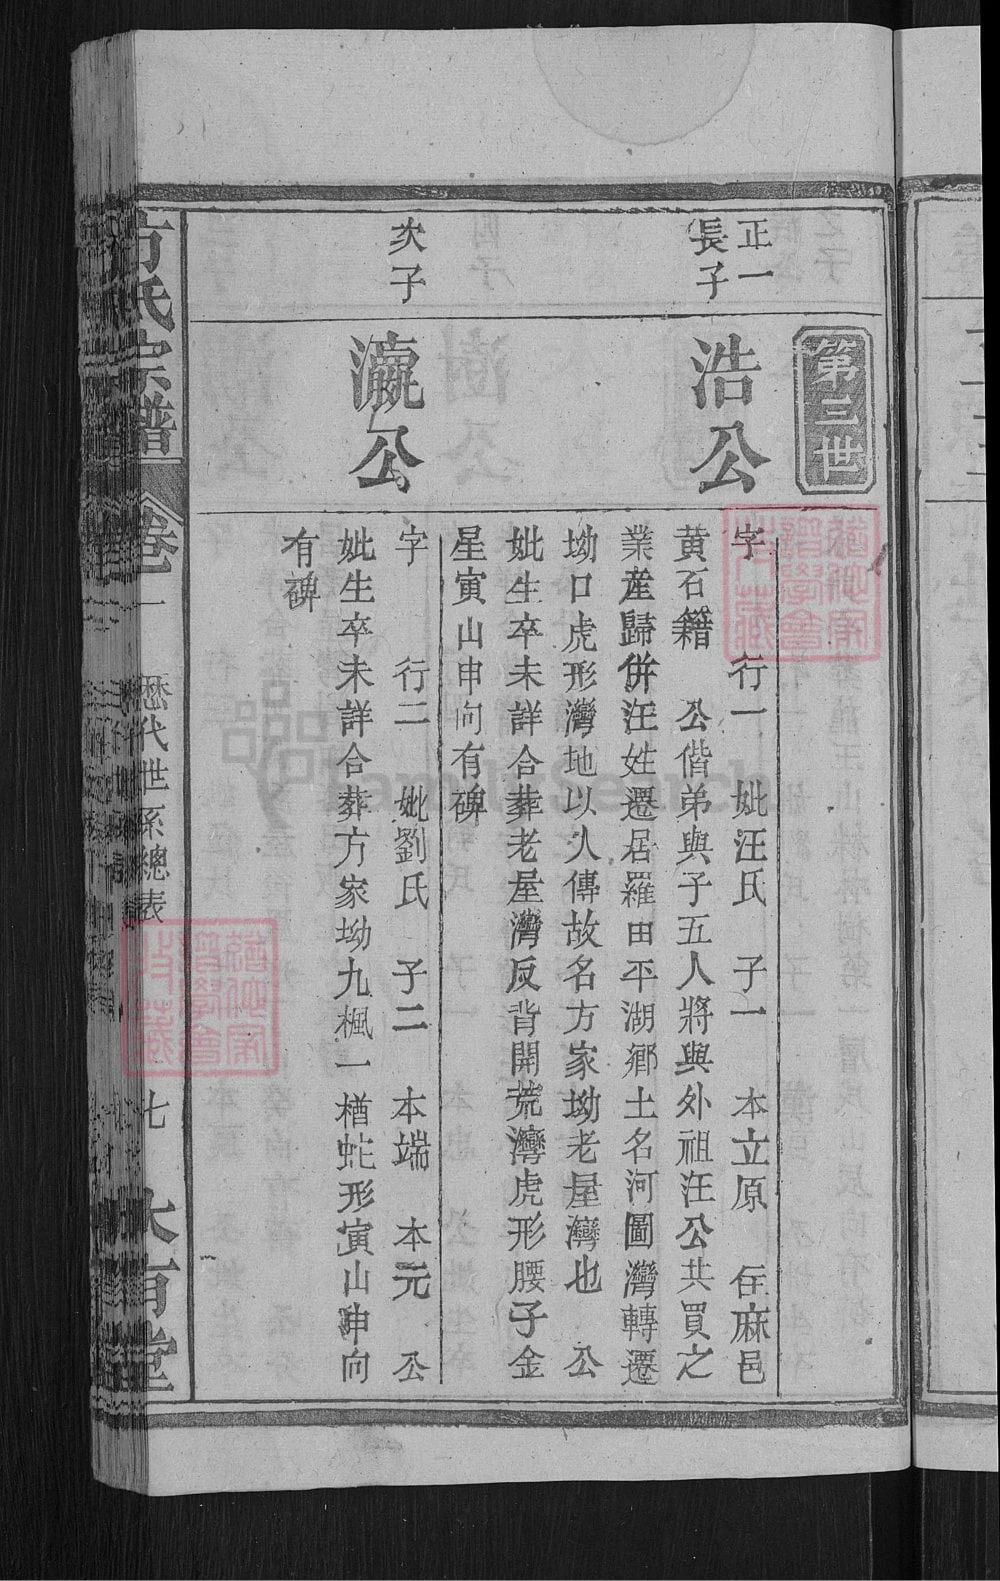 第三世
正一
長子
浩公
字　行一　妣汪氏　子一　本立原　在麻邑
黄石籍　公偕弟與子五人將與外祖汪公共買之
業産歸併汪姓遷居羅田平湖鄉土名河圖灣轉遷
坳口虎形灣地以人傳故名方家坳老屋灣也　公
妣生卒未詳合葬老屋灣反背開荒灣虎形腰子金
星寅山申向有碑
次子
瀛公
字　行二　妣劉氏　子二　本端　本元　公
妣生卒未詳合葬方家坳九楓一楢虵形寅山申向
有碑
方氏宗譜　卷一　歷代世系總表　七　大有堂
FamilySearch